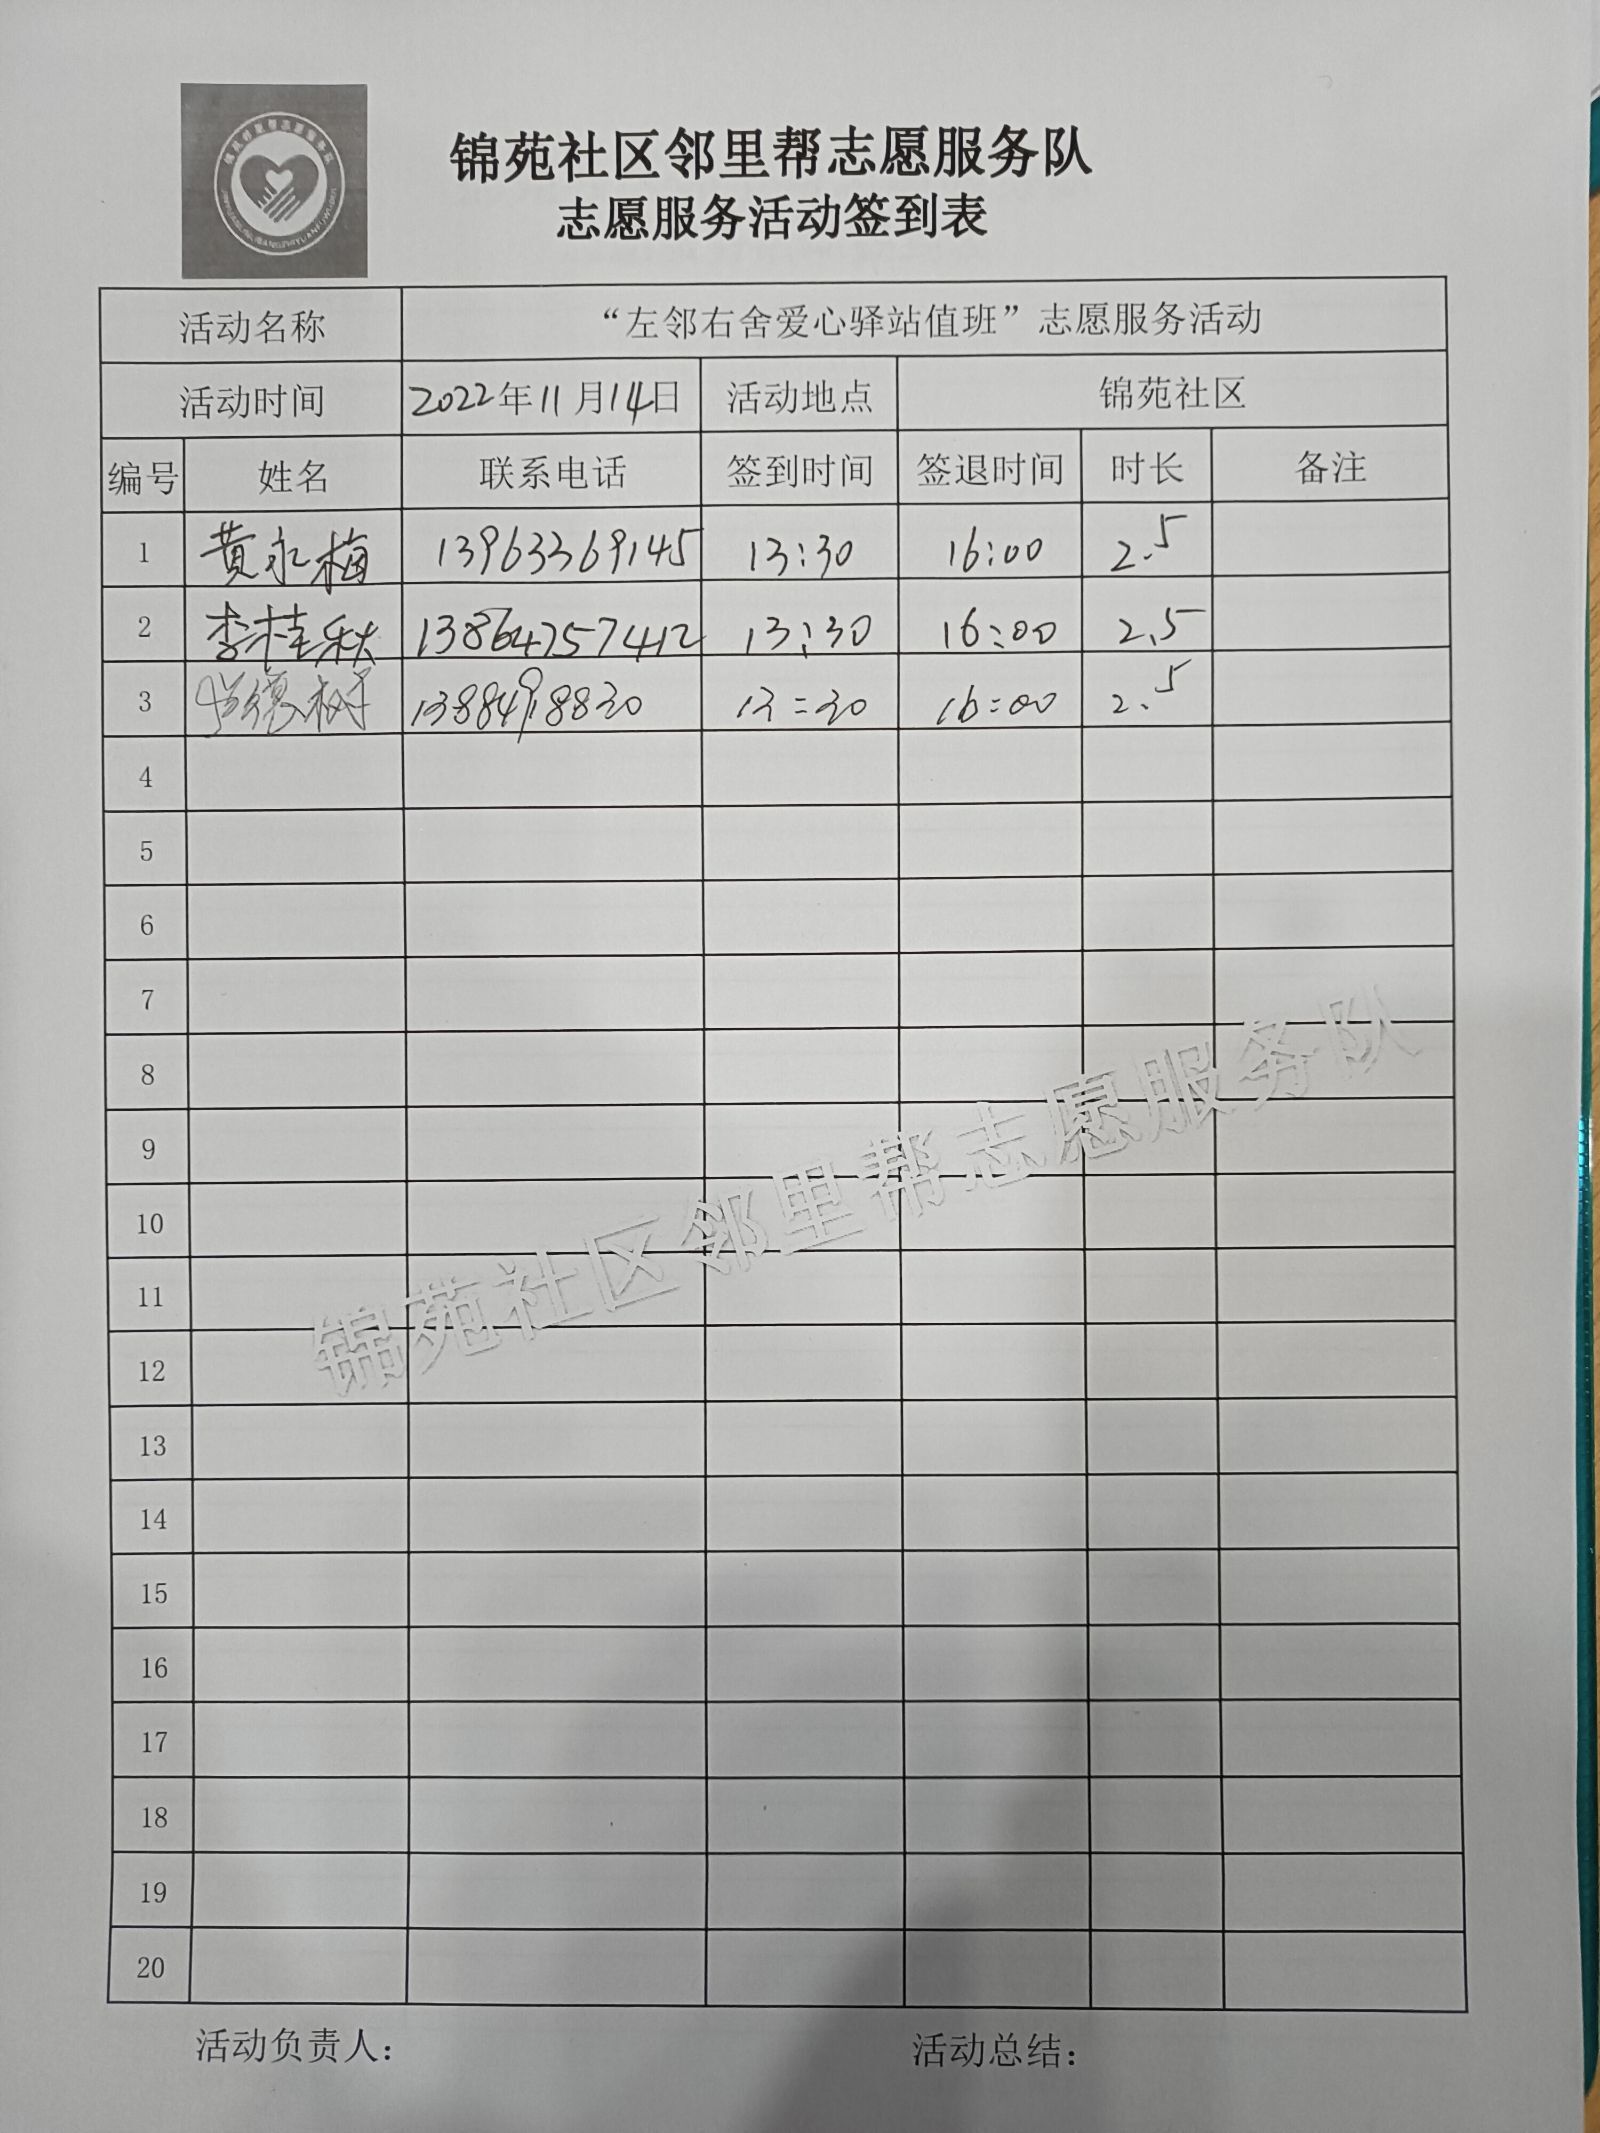 锦苑社区邻里帮志愿服务队
志愿服务活动签到表
活动名称 “左邻右舍爱心驿站值班”志愿服务活动
活动时间 2022年11月14日 活动地点 锦苑社区
编号 姓名 联系电话 签到时间 签退时间 时长 备注
1 黄永梅 13963369145 13:30 16:00 2.5
2 李桂秋 13864757412 13:30 16:00 2.5
3 德树 13884918830 13:30 16:00 2.5
4
5
6
7
8
9
10
11
12
13
14
15
16
17
18
19
20
锦苑社区邻里帮志愿服务队
活动负责人： 活动总结：